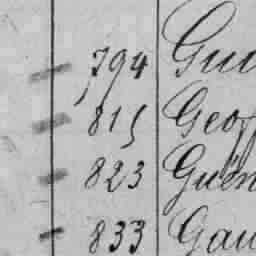 794 Gu
815 Geof
823 Guen
833 Gau